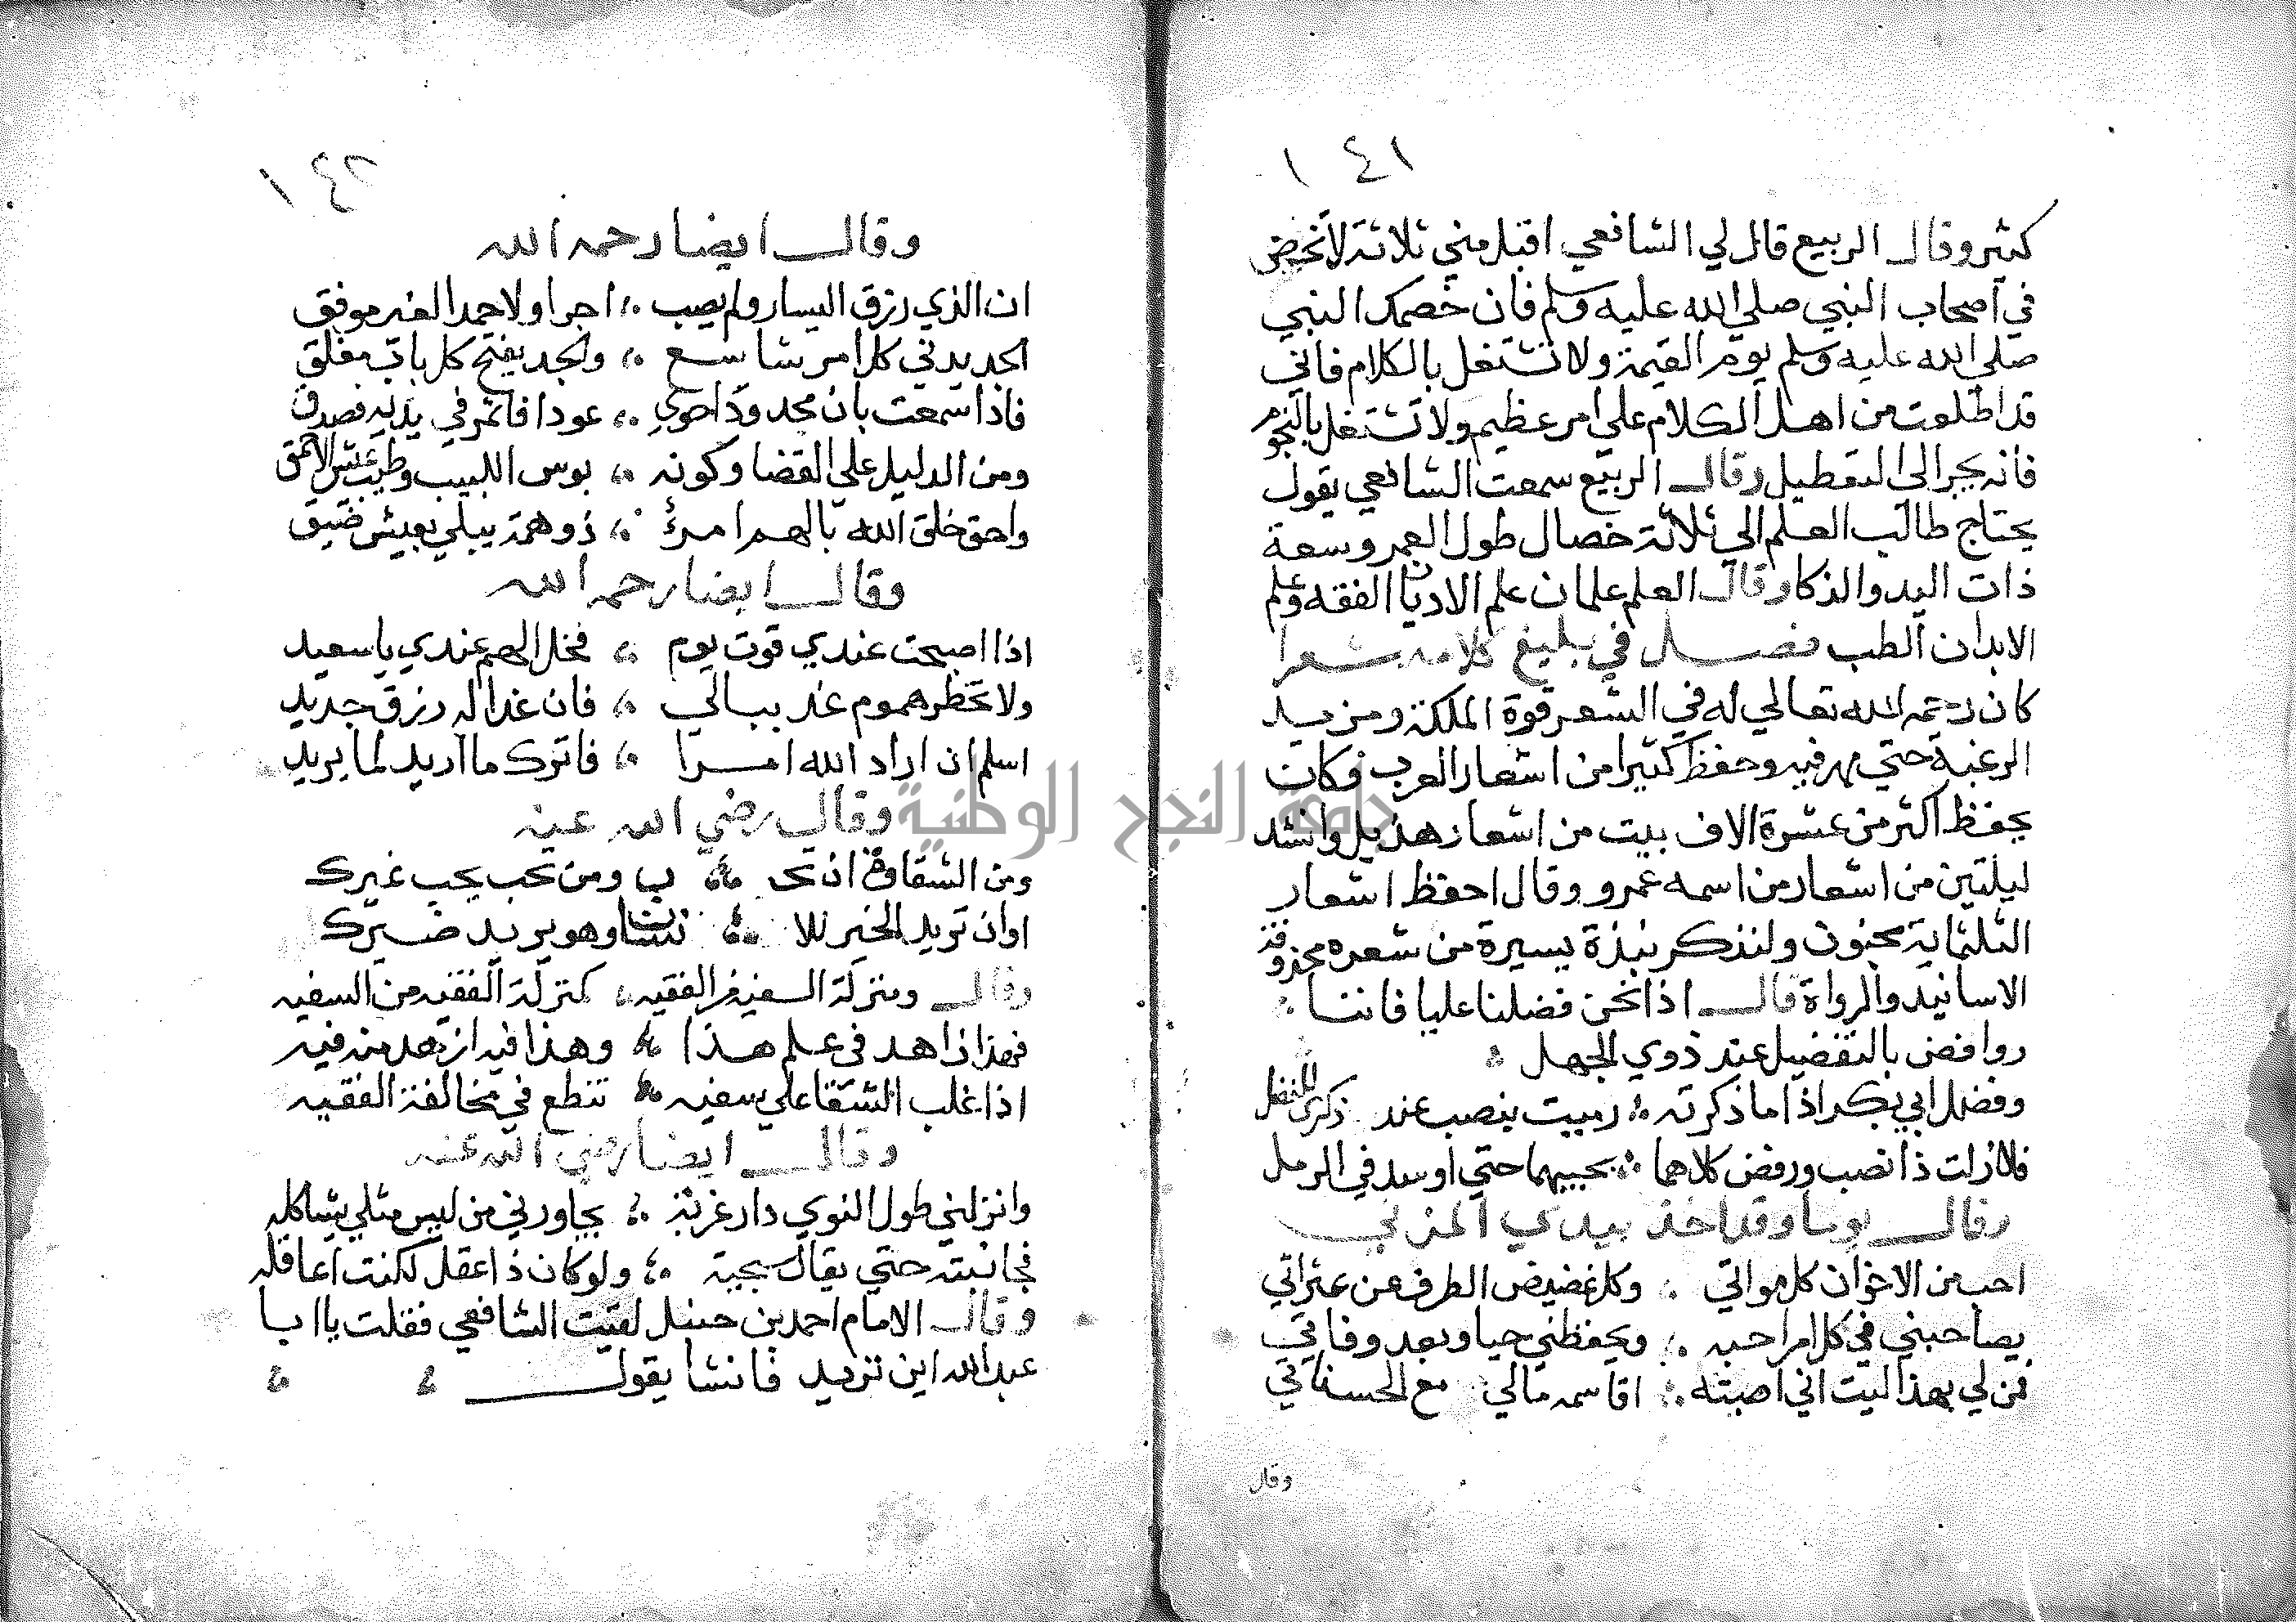 ١٤١
كثير وقال الربيع قال لي الشافعي اقبل مني ثلاثة لا تخض
في اصحاب النبي صلي الله عليه وسلم فان خصمك النبي
صلي الله عليه وسلم يوم القيمة ولا تشتغل بالكلام فاني
قد اطلعت من اهل الكلام علي امر عظيم ولا تشتغل بالنجوم
فانه يجر الي التعطيل وقال الربيع سمعت الشافعي يقول
يحتاج طالب العلم الي ثلاثة خصال طول العمر وسعة
ذات اليد والذكا وقال العلم علمان علم الاديان الفقه وعلم
الابدان الطب فصل في بليغ كلامه شعرا
كان رحمه الله تعالي له في الشعر قوة الملكة ومزيد
الرغبة حتي مهر فيه وحفظ كثيرا من اشعار العرب وكان
يحفظ اكثر من عشرة الاف بيت من اشعار هذيل وانشد
ليلتين من اشعار من اسمه عمرو وقال احفظ اشعار
الثلثماية مجنون ولنذكر نبذة يسيرة من شعره محذوفة
الاسانيد والرواة قال اذا نحن فضلنا عليا فاننا
روافض بالتفضيل عند ذوي الجهل
وفضل ابي بكر اذا ما ذكرته رميت بنصب عند ذكري للفضل
فلا زلت ذا نصب ورفض كلاهما بحبيهما حتي اوسد في الرمل
وقال يوما وقد اخذ بيدي المزني
احب من الاخوان كل مواتي وكل غضيض الطرف عن عثراتي
يصاحبني في كل امر احبه ويحفظني حيا وبعد وفاتي
فمن لي بهذا ليت اني اصبته اقاسمه مالي مع الحسناتي
وقال
١٤٢
وقال ايضا رحمه الله
ان الذي رزق اليسار ولم يصب اجرا ولا حمدا لغير موفق
الجد يدني كل امر شاسع والجد يفتح كل باب مغلق
فاذا سمعت بان مجدودا حوي عودا فاثمر في يديه فصدق
ومن الدليل علي القضا وكونه بوس اللبيب وطيب عيش الاحمق
واحق خلق الله بالهم امرؤ ذو همة يبلي بعيش ضيق
وقال ايضا رحمه الله
اذا اصبحت عندي قوت يوم فخل الهم عندي يا سعيد
ولا تخطر هموم غد ببالي فان غدا له رزق جديد
اسلم ان اراد الله امرا فاترك ما اريد لما يريد
وقال رضي الله عنه
ومن الشقاوة ان تحب ومن تحب يحب غيرك
او ان تريد الخير للانسان وهو يريد ضيرك
وقال ومنزلة السفيه من الفقيه كمنزلة الفقيه من السفيه
فهذا زاهد في علم هذا وهذا فيه ازهد منه فيه
اذا غلب الشقا علي سفيه تنطع في مخالفة الفقيه
وقال ايضا رضي الله عنه
وانزلني طول النوي دار غربة يجاورني من ليس مثلي يشاكله
فجانبته حتي يقال سجية ولو كان ذا عقل لكنت اعاقله
وقال الامام احمد بن حنبل لقيت الشافعي فقلت يا ابا
عبد الله اين تريد فانشا يقول
جامعة النجاح الوطنية